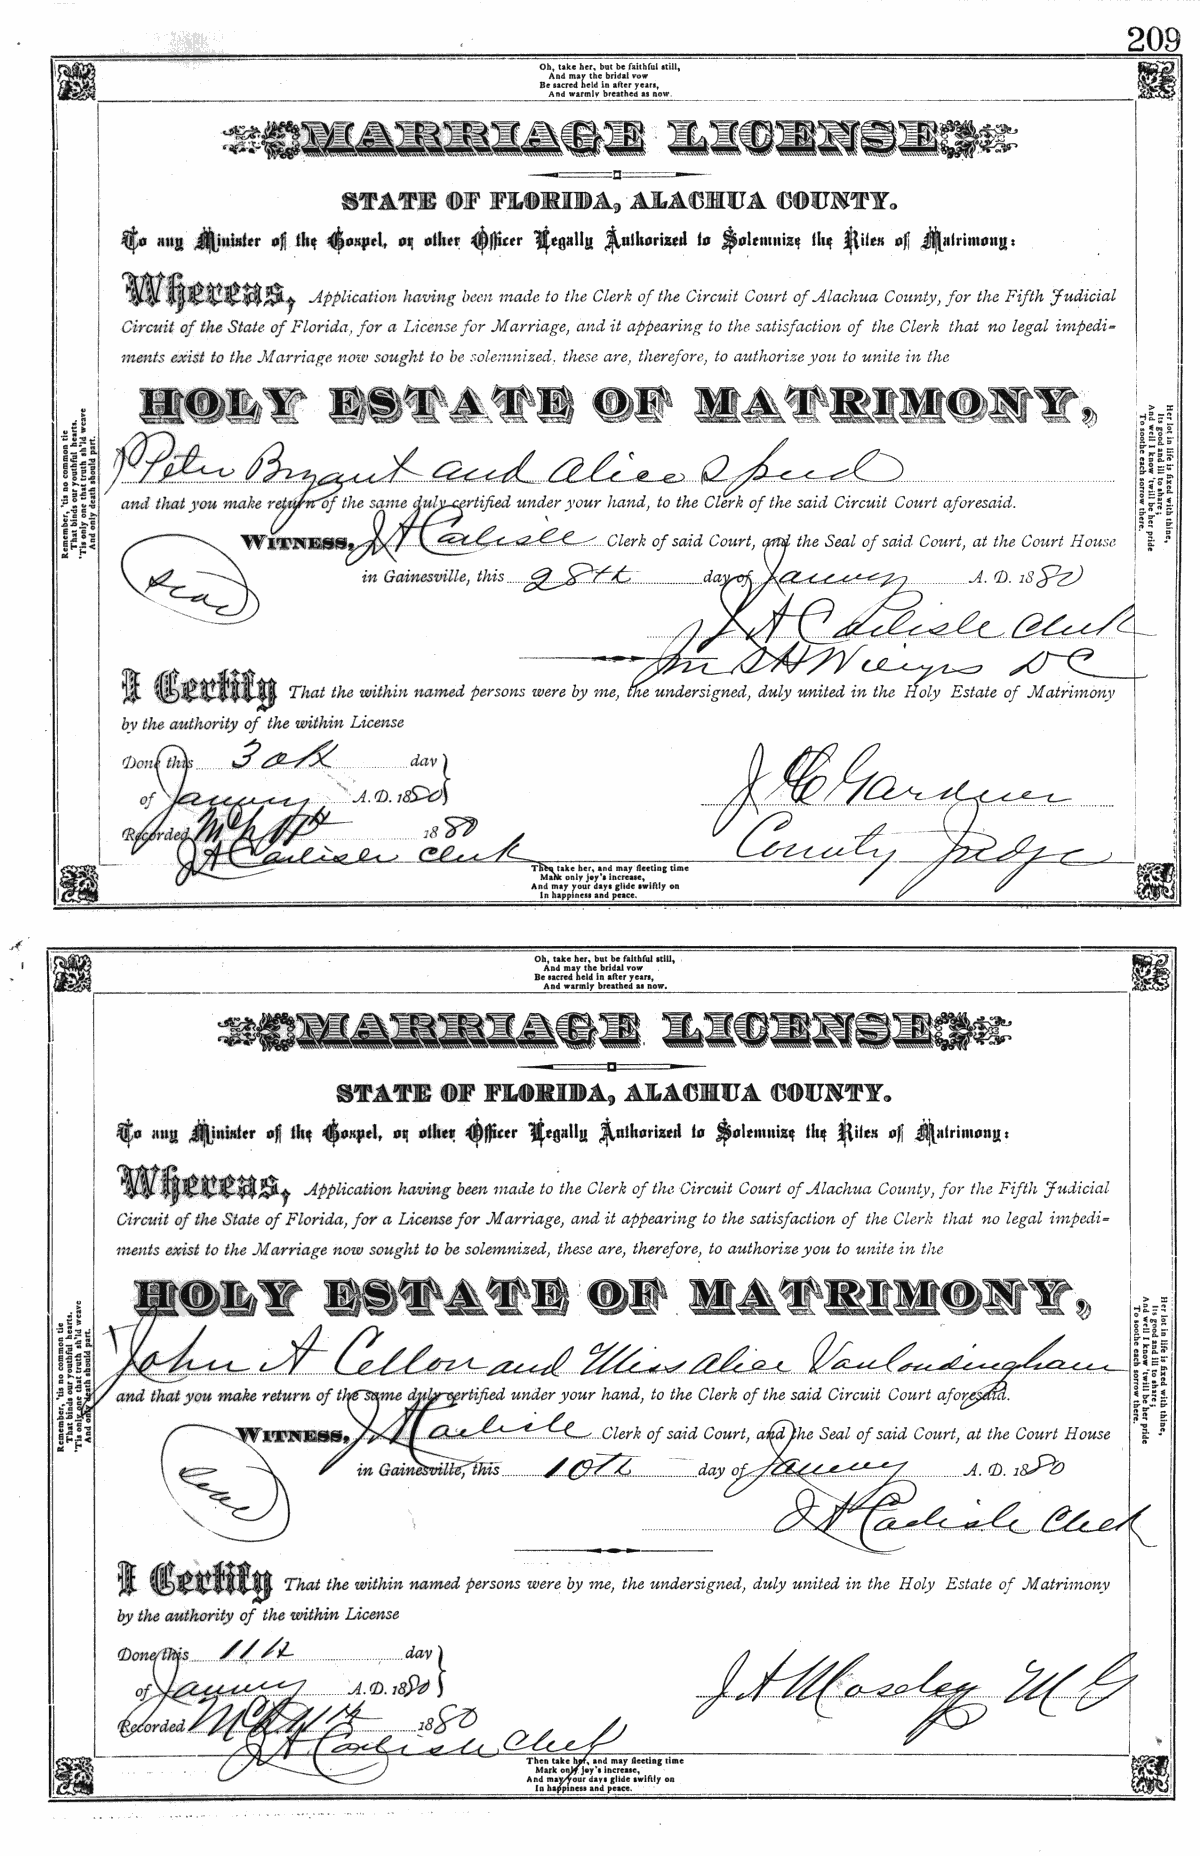 209
Oh, take her, but be faithful still,
And may the bridal vow
Be sacred held in after years,
And warmly breathed as now.
MARRIAGE LICENSE
STATE OF FLORIDA, ALACHUA COUNTY.
To any Minister of the Gospel, or other Officer Legally Authorized to Solemnize the Rites of Matrimony:
Whereas, Application having been made to the Clerk of the Circuit Court of Alachua County, for the Fifth Judicial
Circuit of the State of Florida, for a License for Marriage, and it appearing to the satisfaction of the Clerk that no legal impedi-
ments exist to the Marriage now sought to be solemnized, these are, therefore, to authorize you to unite in the
HOLY ESTATE OF MATRIMONY,
Peter Bryant and Alice Speed
and that you make return of the same duly certified under your hand, to the Clerk of the said Circuit Court aforesaid.
WITNESS, J A Carlisle Clerk of said Court, and the Seal of said Court, at the Court House
Seal
in Gainesville, this 28th day of January A. D. 1880
J A Carlisle Clerk
DC
I Certify That the within named persons were by me, the undersigned, duly united in the Holy Estate of Matrimony
by the authority of the within License
Done this 30th day
of January A.D. 1880
J C Gardner
Recorded 1880
County Judge
J A Carlisle Clerk
Then take her, and may fleeting time
Mark only joy's increase,
And may your days glide swiftly on
In happiness and peace.
Remember, 'tis no common tie
That binds our youthful hearts.
'Tis only one that truth sh'ld weave
And only death should part.
Her lot in life is fixed with thine,
Its good and ill to share;
And well I know 'twill be her pride
To soothe each sorrow there.
Oh, take her, but be faithful still,
And may the bridal vow
Be sacred held in after years,
And warmly breathed as now.
MARRIAGE LICENSE
STATE OF FLORIDA, ALACHUA COUNTY.
To any Minister of the Gospel, or other Officer Legally Authorized to Solemnize the Rites of Matrimony:
Whereas, Application having been made to the Clerk of the Circuit Court of Alachua County, for the Fifth Judicial
Circuit of the State of Florida, for a License for Marriage, and it appearing to the satisfaction of the Clerk that no legal impedi-
ments exist to the Marriage now sought to be solemnized, these are, therefore, to authorize you to unite in the
HOLY ESTATE OF MATRIMONY,
John A Cellon and Miss Alice Vanlondingham
and that you make return of the same duly certified under your hand, to the Clerk of the said Circuit Court aforesaid.
WITNESS, J A Carlisle Clerk of said Court, and the Seal of said Court, at the Court House
Seal
in Gainesville, this 10th day of January A. D. 1880
J A Carlisle Clerk
I Certify That the within named persons were by me, the undersigned, duly united in the Holy Estate of Matrimony
by the authority of the within License
Done this 11th day
of January A.D. 1880
J A Moseley M G
Recorded 1880
J A Carlisle Clerk
Then take her, and may fleeting time
Mark only joy's increase,
And may your days glide swiftly on
In happiness and peace.
Remember, 'tis no common tie
That binds our youthful hearts.
'Tis only one that truth sh'ld weave
And only death should part.
Her lot in life is fixed with thine,
Its good and ill to share;
And well I know 'twill be her pride
To soothe each sorrow there.